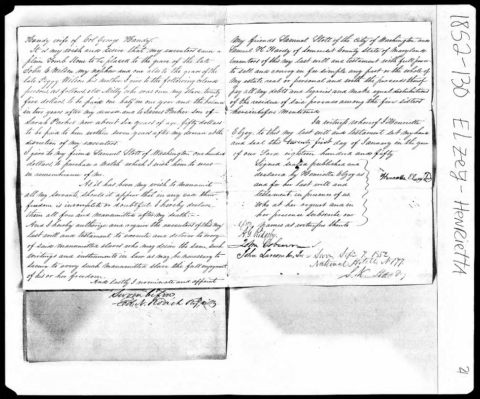 Handy wife of Col George Handy.
It is my wish and desire that my executors cause a
plain Tomb Stone to be placed to the grave of the late
John C Wilson, my nephew and one also to the grave of the
late Peggy Wilson his mother. I give to the following coloured
persons as follows old Milly who was once my slave twenty
five dollars to be paid one half in one year and the balance
in two years after my decease and to Severn Parker son of
Sarah Parker now about six years of age fifty dollars
to be paid to him within seven years after my decease at the
discretion of my executors
I give to my friend Samuel Stott of Washington one hundred
dollars to purchase a watch which I wish him to wear
in remembrance of me.
As it has been my wish to manumit
all my servants should it appear that in any case their
freedom is incomplete or doubtful I hereby declare
them all free and manumitted after my death
And I hereby authorize and require the executors of this my
last will and testament to execute and deliver to every
of said manumitted slaves who may desire the same, such
writings and instruments in law as may be necessary to
secure to every such manumitted slave the full enjoyment
of his or her freedom.
And lastly I nominate and appoint
Sworn before
my friends Samuel Stott of the City of Washington and
Samuel K Handy of Somerset County State of Maryland
executors of this my last will and testament with full power
to sell and convey in fee simple any part or the whole of
my estate real or personal and with the proceeds thereof
pay all my debts and legacies and make equal distribution
of the residue of said process among the five sisters
hereinbefore mentioned
In witness whereof I Henrietta
Elzey to this my last will and testament set my hand
and seal this twenty first day of January in the year
of our Lord eighteen hundred and fifty
Signed sealed published and
declared by Henrietta Elzey as
and for her last will and
testament in presence of us
who at her request and in
her presence subscribe our
names as witnesses thereto
Henrietta Elzey
John Coburn
Sworn Sept 7, 1852
National Hotel
S. K. Handy
1852-130 ELZEY-HENRIETTA
2